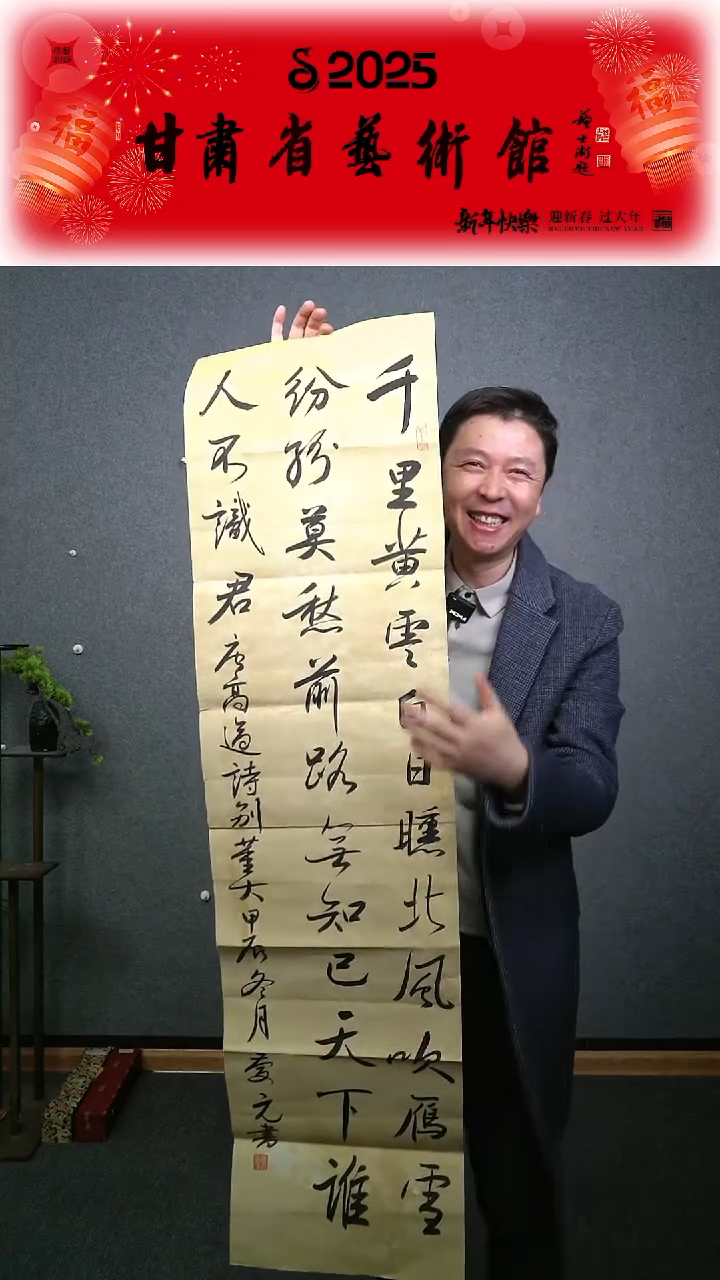 2025
福
福
甘肅省藝術館
新年快樂
迎新春 过大年
千里黄雲白日曛北風吹雁雪
紛紛莫愁前路無知己天下誰
人不識君 唐高適詩別董大甲辰冬月 元書